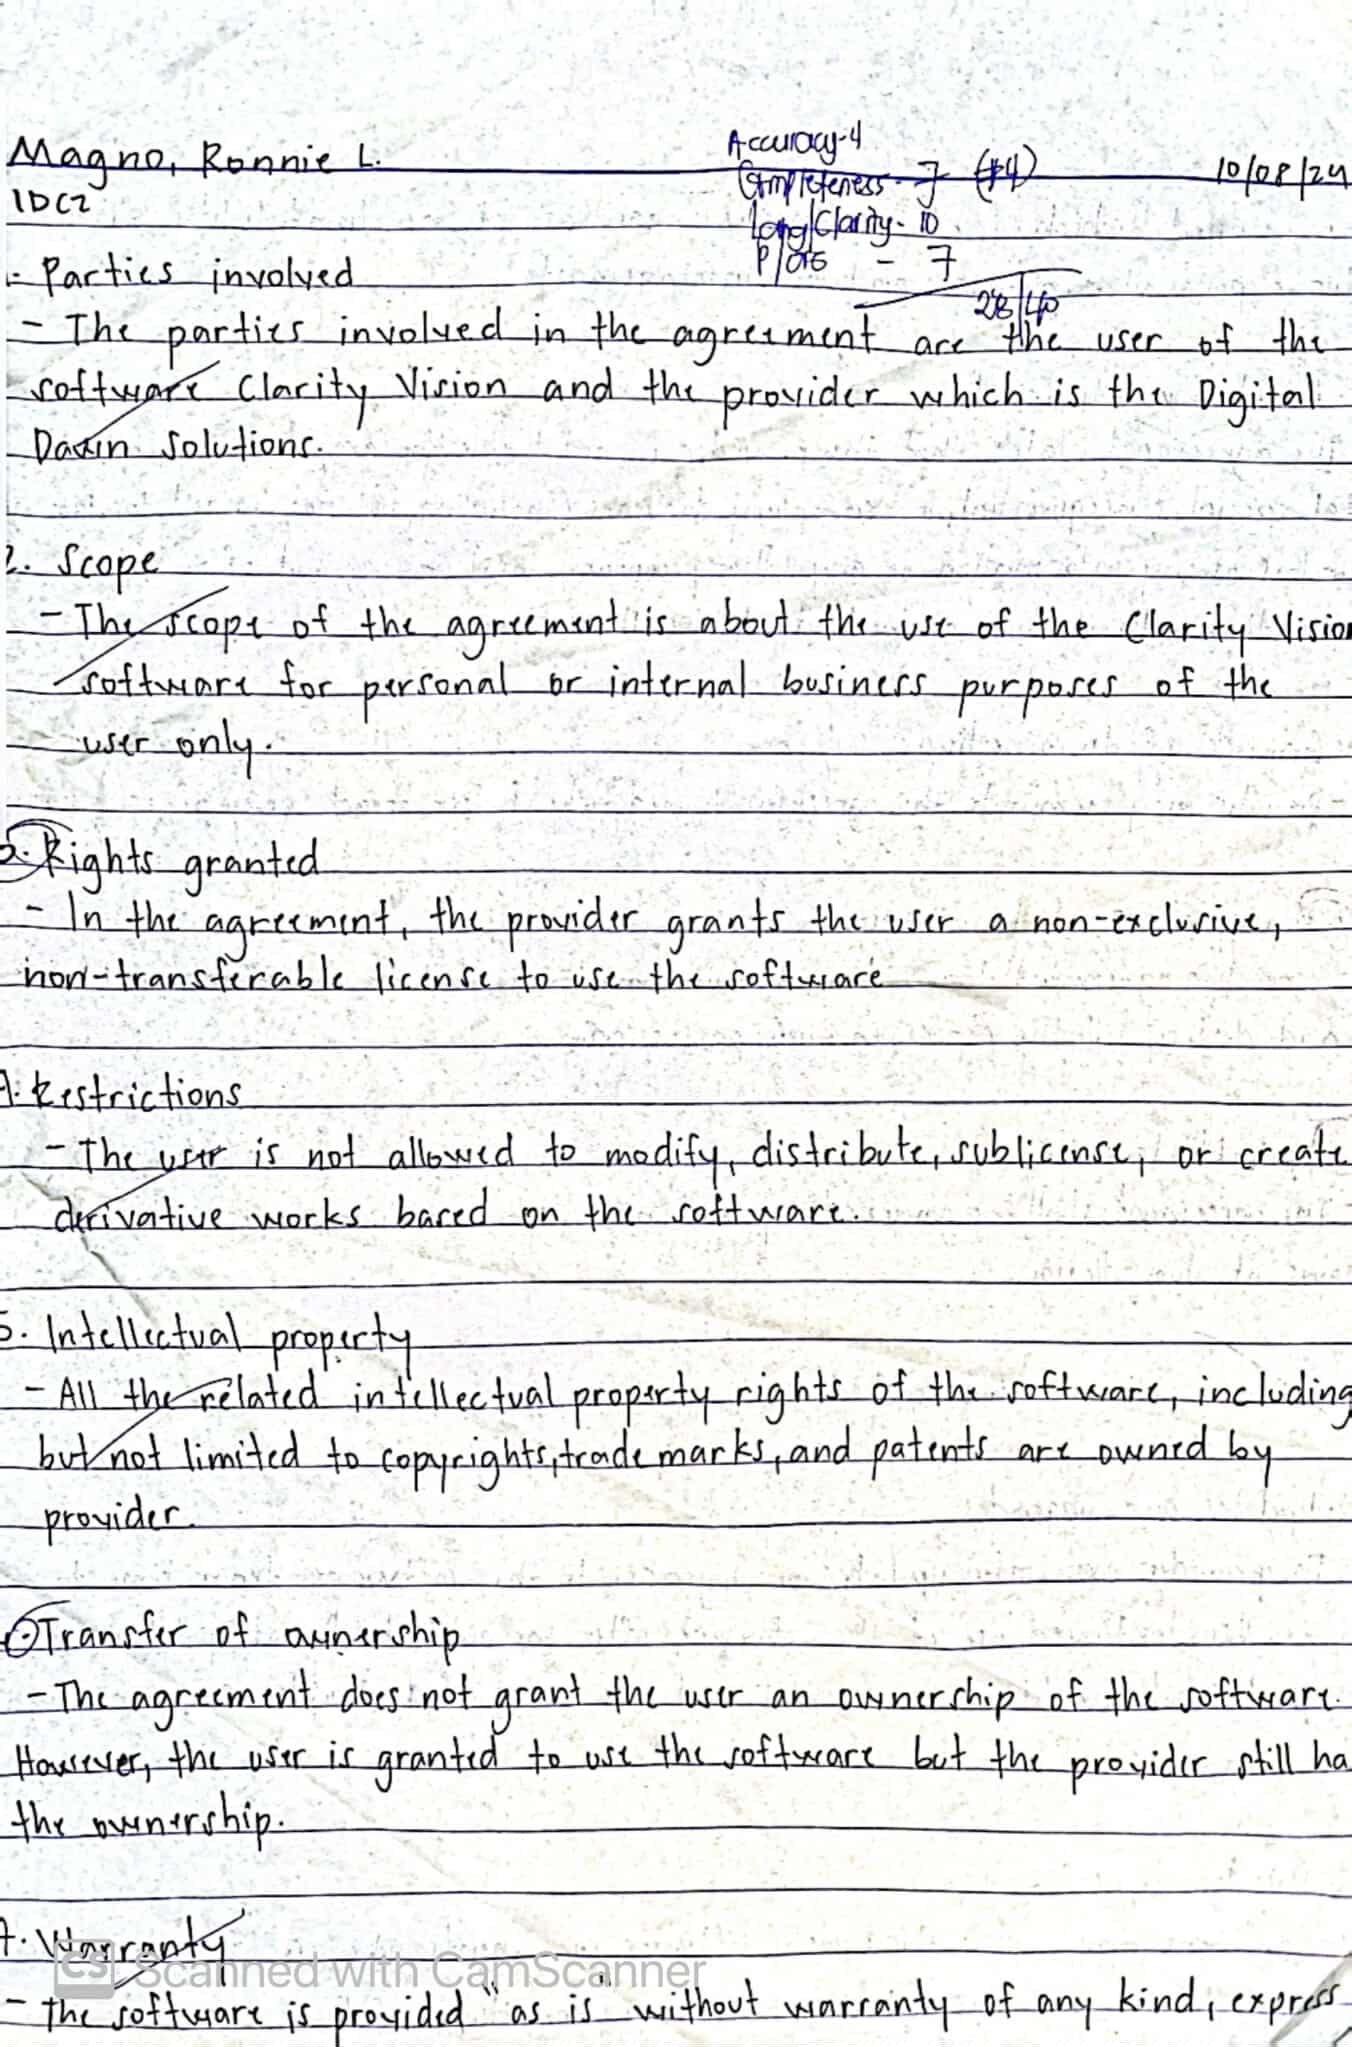 Magno, Ronnie L.
Accuracy-4
Completeness - 7 (#4)
10/08/24
IDC2
Lang/Clarity- 10
- 7
28/40
- Parties involved
- The parties involved in the agreement are the user of the
software Clarity Vision and the provider which is the Digital
Dawn Solutions.
2. Scope
- The scope of the agreement is about the use of the Clarity Vision
software for personal or internal business purposes of the
user only.
3. Rights granted
- In the agreement, the provider grants the user a non-exclusive,
non-transferable license to use the software
4. Restrictions
- The user is not allowed to modify, distribute, sublicense, or create
derivative works based on the software.
5. Intellectual property
- All the related intellectual property rights of the software, including
but not limited to copyrights, trademarks, and patents are owned by
provider.
Transfer of ownership
- The agreement does not grant the user an ownership of the software.
However, the user is granted to use the software but the provider still ha
the ownership.
7. Warranty
CS Scanned with CamScanner
- the software is provided "as is" without warranty of any kind, express